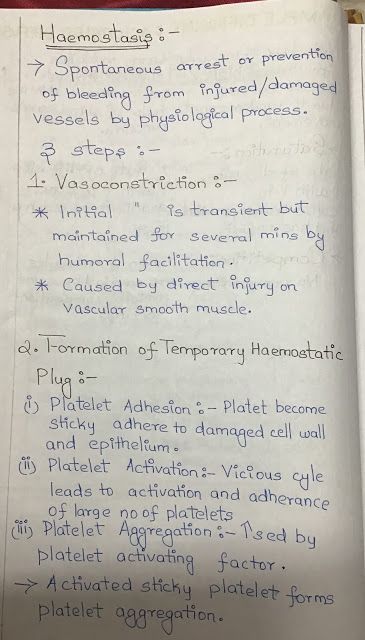 Haemostasis :-
→ Spontaneous arrest or prevention
of bleeding from injured/damaged
vessels by physiological process.
3 steps :-
1. Vasoconstriction :-
* Initial " is transient but
maintained for several mins by
humoral facilitation.
* Caused by direct injury on
vascular smooth muscle.
2. Formation of Temporary Haemostatic
Plug :-
(i) Platelet Adhesion :- Platet become
sticky adhere to damaged cell wall
and epithelium.
(ii) Platelet Activation :- Vicious cyle
leads to activation and adherance
of large no of platelets
(iii) Platelet Aggregation :- ↑sed by
platelet activating factor.
→ Activated sticky platelet forms
platelet aggregation.